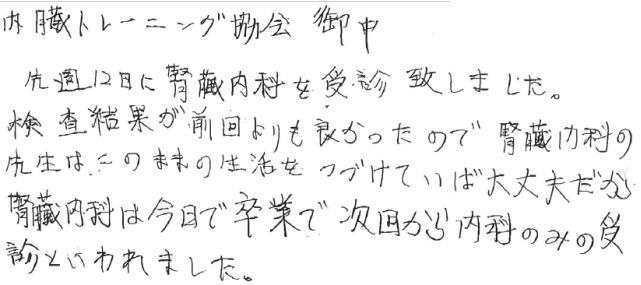 内臓トレーニング協会 御中
先週12日に腎臓内科を受診致しました。
検査結果が前回よりも良かったので腎臓内科の
先生はこのままの生活をつづけていけば大丈夫だから
腎臓内科は今日で卒業で次回から内科のみの受
診といわれました。